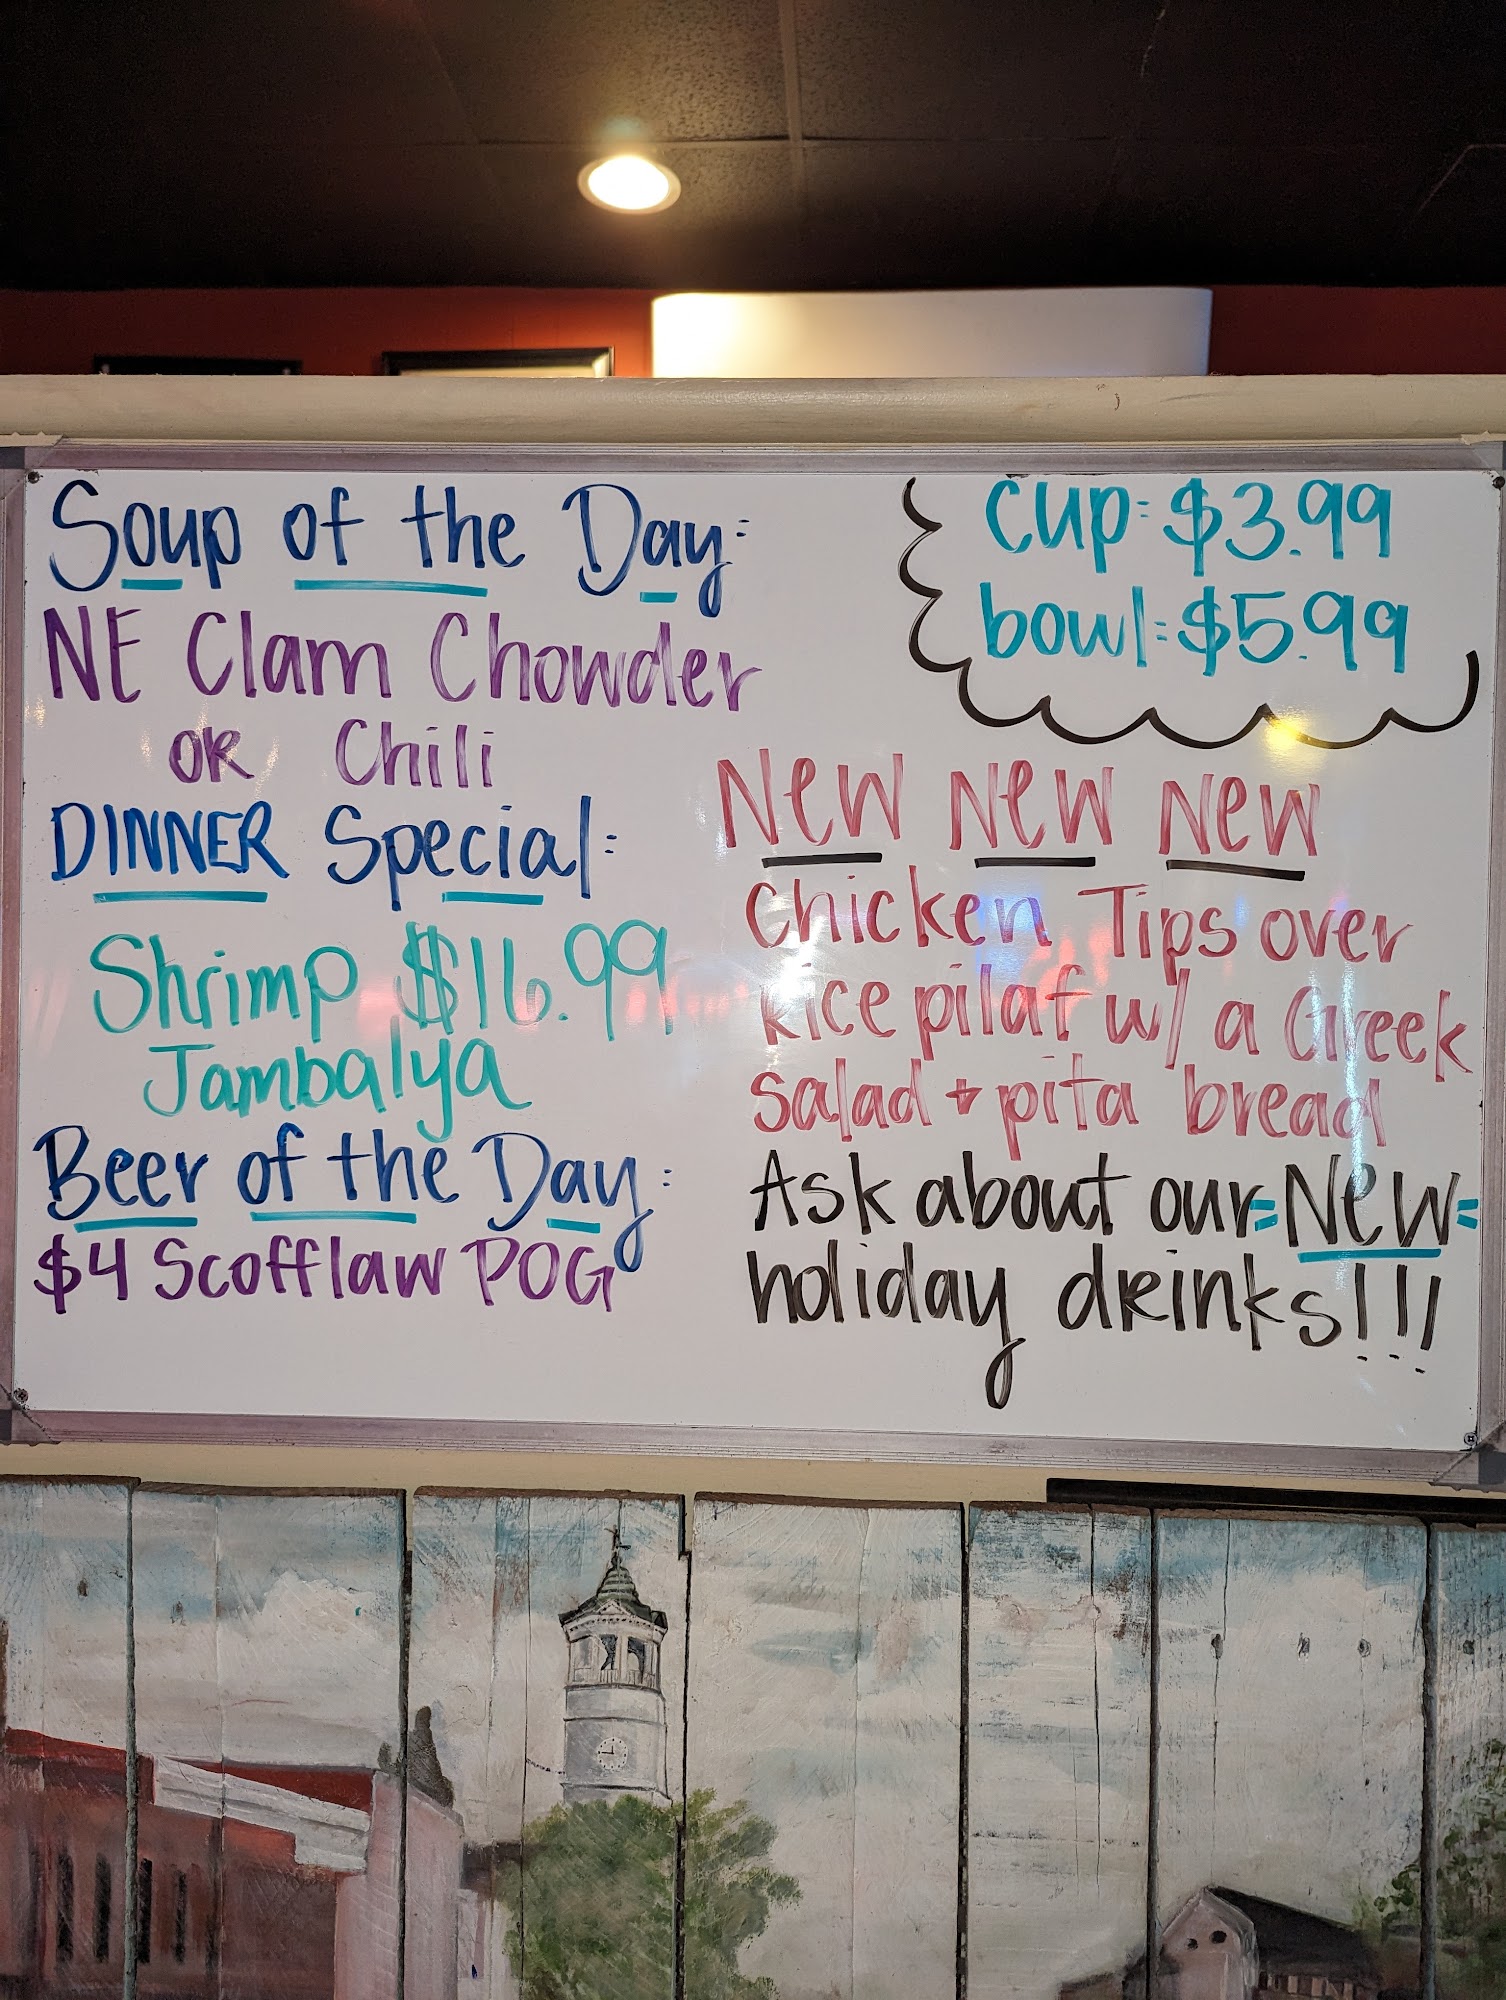 Soup of the Day:
NE Clam Chowder
OR Chili
DINNER Special:
Shrimp $16.99
Jambalya
Beer of the Day:
$4 Scofflaw POG
cup: $3.99
bowl: $5.99
New New New
Chicken Tips over
Rice pilaf w/ a Greek
salad + pita bread
Ask about our =New=
holiday drinks!!!